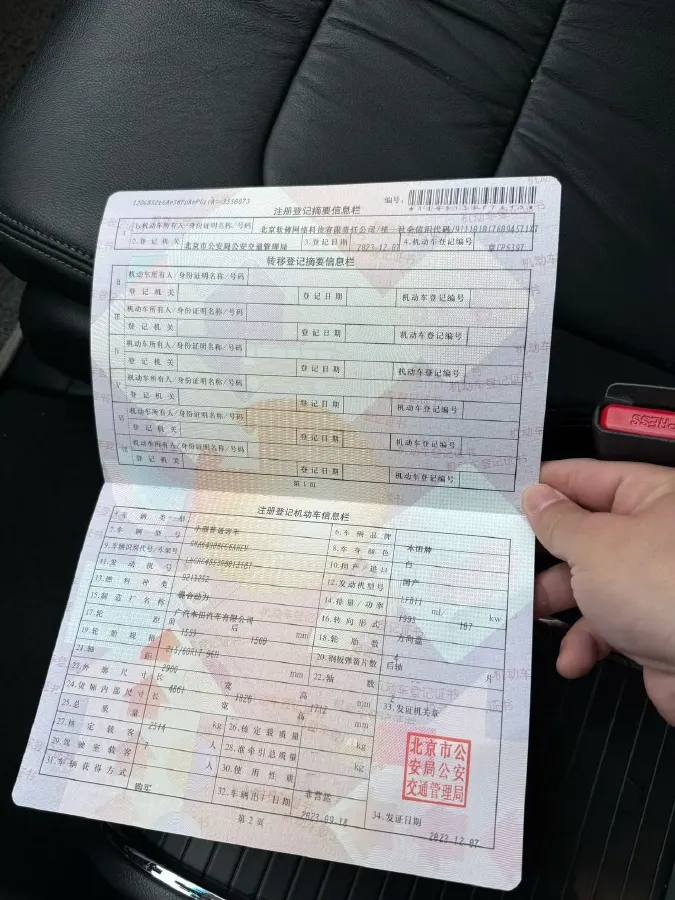 编号:
注册登记摘要信息栏
I 1.机动车所有人/身份证明名称/号码
2.登记机关 北京市公安局公安交通管理局 3.登记日期 2023-12-07 4.机动车登记编号
转移登记摘要信息栏
II 机动车所有人/身份证明名称/号码
登记机关 登记日期 机动车登记编号
III 机动车所有人/身份证明名称/号码
登记机关 登记日期 机动车登记编号
IV 机动车所有人/身份证明名称/号码
登记机关 登记日期 机动车登记编号
V 机动车所有人/身份证明名称/号码
登记机关 登记日期 机动车登记编号
VI 机动车所有人/身份证明名称/号码
登记机关 登记日期 机动车登记编号
VII 机动车所有人/身份证明名称/号码
登记机关 登记日期 机动车登记编号
第1页
注册登记机动车信息栏
5.车辆类型 小型普通客车 6.车辆品牌 本田牌
7.车辆型号 8.车身颜色 白
9.车辆识别代号/车架号 10.国产/进口 国产
11.发动机号 12.发动机型号
13.燃料种类 混合动力 14.排量/功率 1993 ml/ 107 kw
15.制造厂名称 广汽本田汽车有限公司 16.转向形式 方向盘
17.轮距 前 1559 后 1560 mm 18.轮胎数 4
19.轮胎规格 215/60R17 96H 20.钢板弹簧片数 后轴 片
21.轴距 2900 mm 22.轴数
23.外廓尺寸 长 4861 宽 1820 高 1712 mm 33.发证机关章
24.货厢内部尺寸 长 宽 高 mm
25.总质量 2514 kg 26.核定载质量 kg
27.核定载客 7 人 28.准牵引总质量 kg
29.驾驶室载客 人 30.使用性质 非营运
31.车辆获得方式 购买 32.车辆出厂日期 2023-09-18 34.发证日期 2023-12-07
北京市公
安局公安
交通管理局
第2页
PRESS